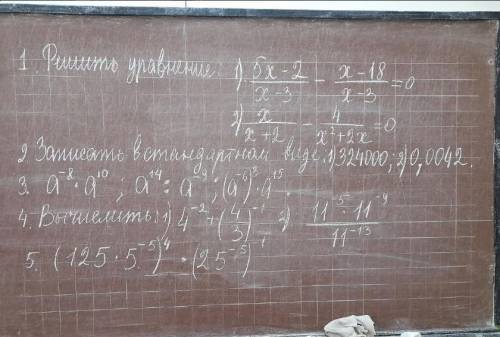 1. Решить уравнение: 1) (5x-2)/(x-3) - (x-18)/(x-3) = 0
2) x/(x+2) - 4/(x²+2x) = 0
2 Записать в стандартном виде: 1) 324000; 2) 0,0042.
3. a⁻⁸ · a¹⁰ ; a¹⁴ : a⁻⁹ ; (a⁻⁶)³ · a¹⁵
4. Вычислить: 1) 4⁻² + (4/3)⁻¹ 2) (11⁻⁵ · 11⁻⁴)/11⁻¹³
5. (125 · 5⁻⁵)⁴ · (25⁻³)⁻¹